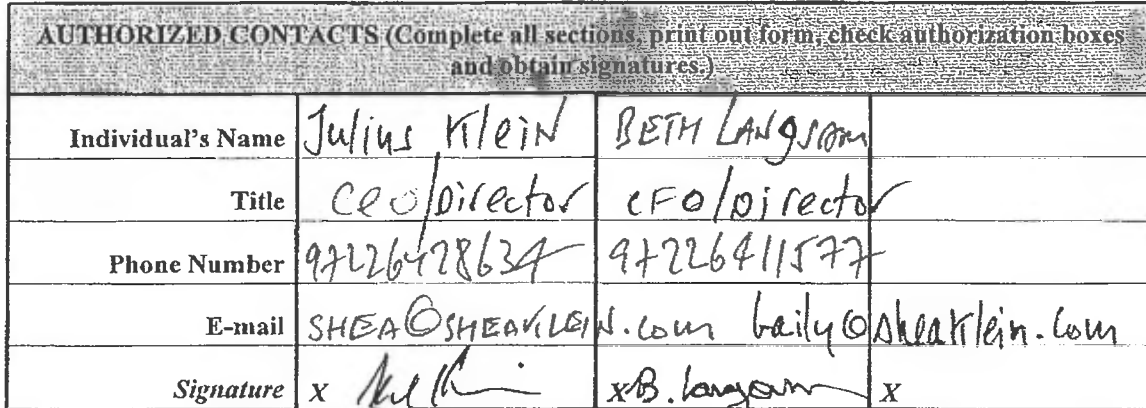 AUTHORIZED CONTACTS (Complete all sections, print out form, check authorization boxes
and obtain signatures.)
Individual's Name Julius Klein BETH LANgsam
Title CEO/Director CFO/Director
Phone Number 97226428634 97226411577
E-mail SHEA@SHEAKLEIN.com baily@sheaklein.com
Signature x x B. Langsam x